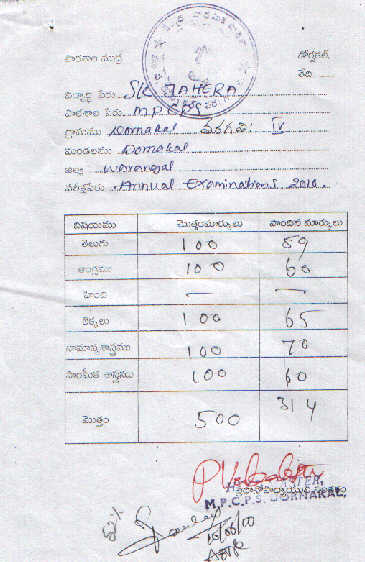 పాఠశాల ముద్ర
తేది
విద్యార్థి పేరు SK TAHERA
పాఠశాల పేరు M P C P S
గ్రామము Dornakal తరగతి IV
మండలము Dornakal
జిల్లా Warangal
పరీక్షపేరు Annual Examinations 2010.
విషయము మొత్తంమార్కులు పొందిన మార్కులు
తెలుగు 100 59
ఆంగ్లము 100 60
హింది — —
లెక్కలు 100 65
సామాన్య శాస్త్రము 100 70
సాంఘీక శాస్త్రము 100 60
మొత్తం 500 314
ప్రధానోపాధ్యాయుని
M.P.C.P.S. DORNAKAL